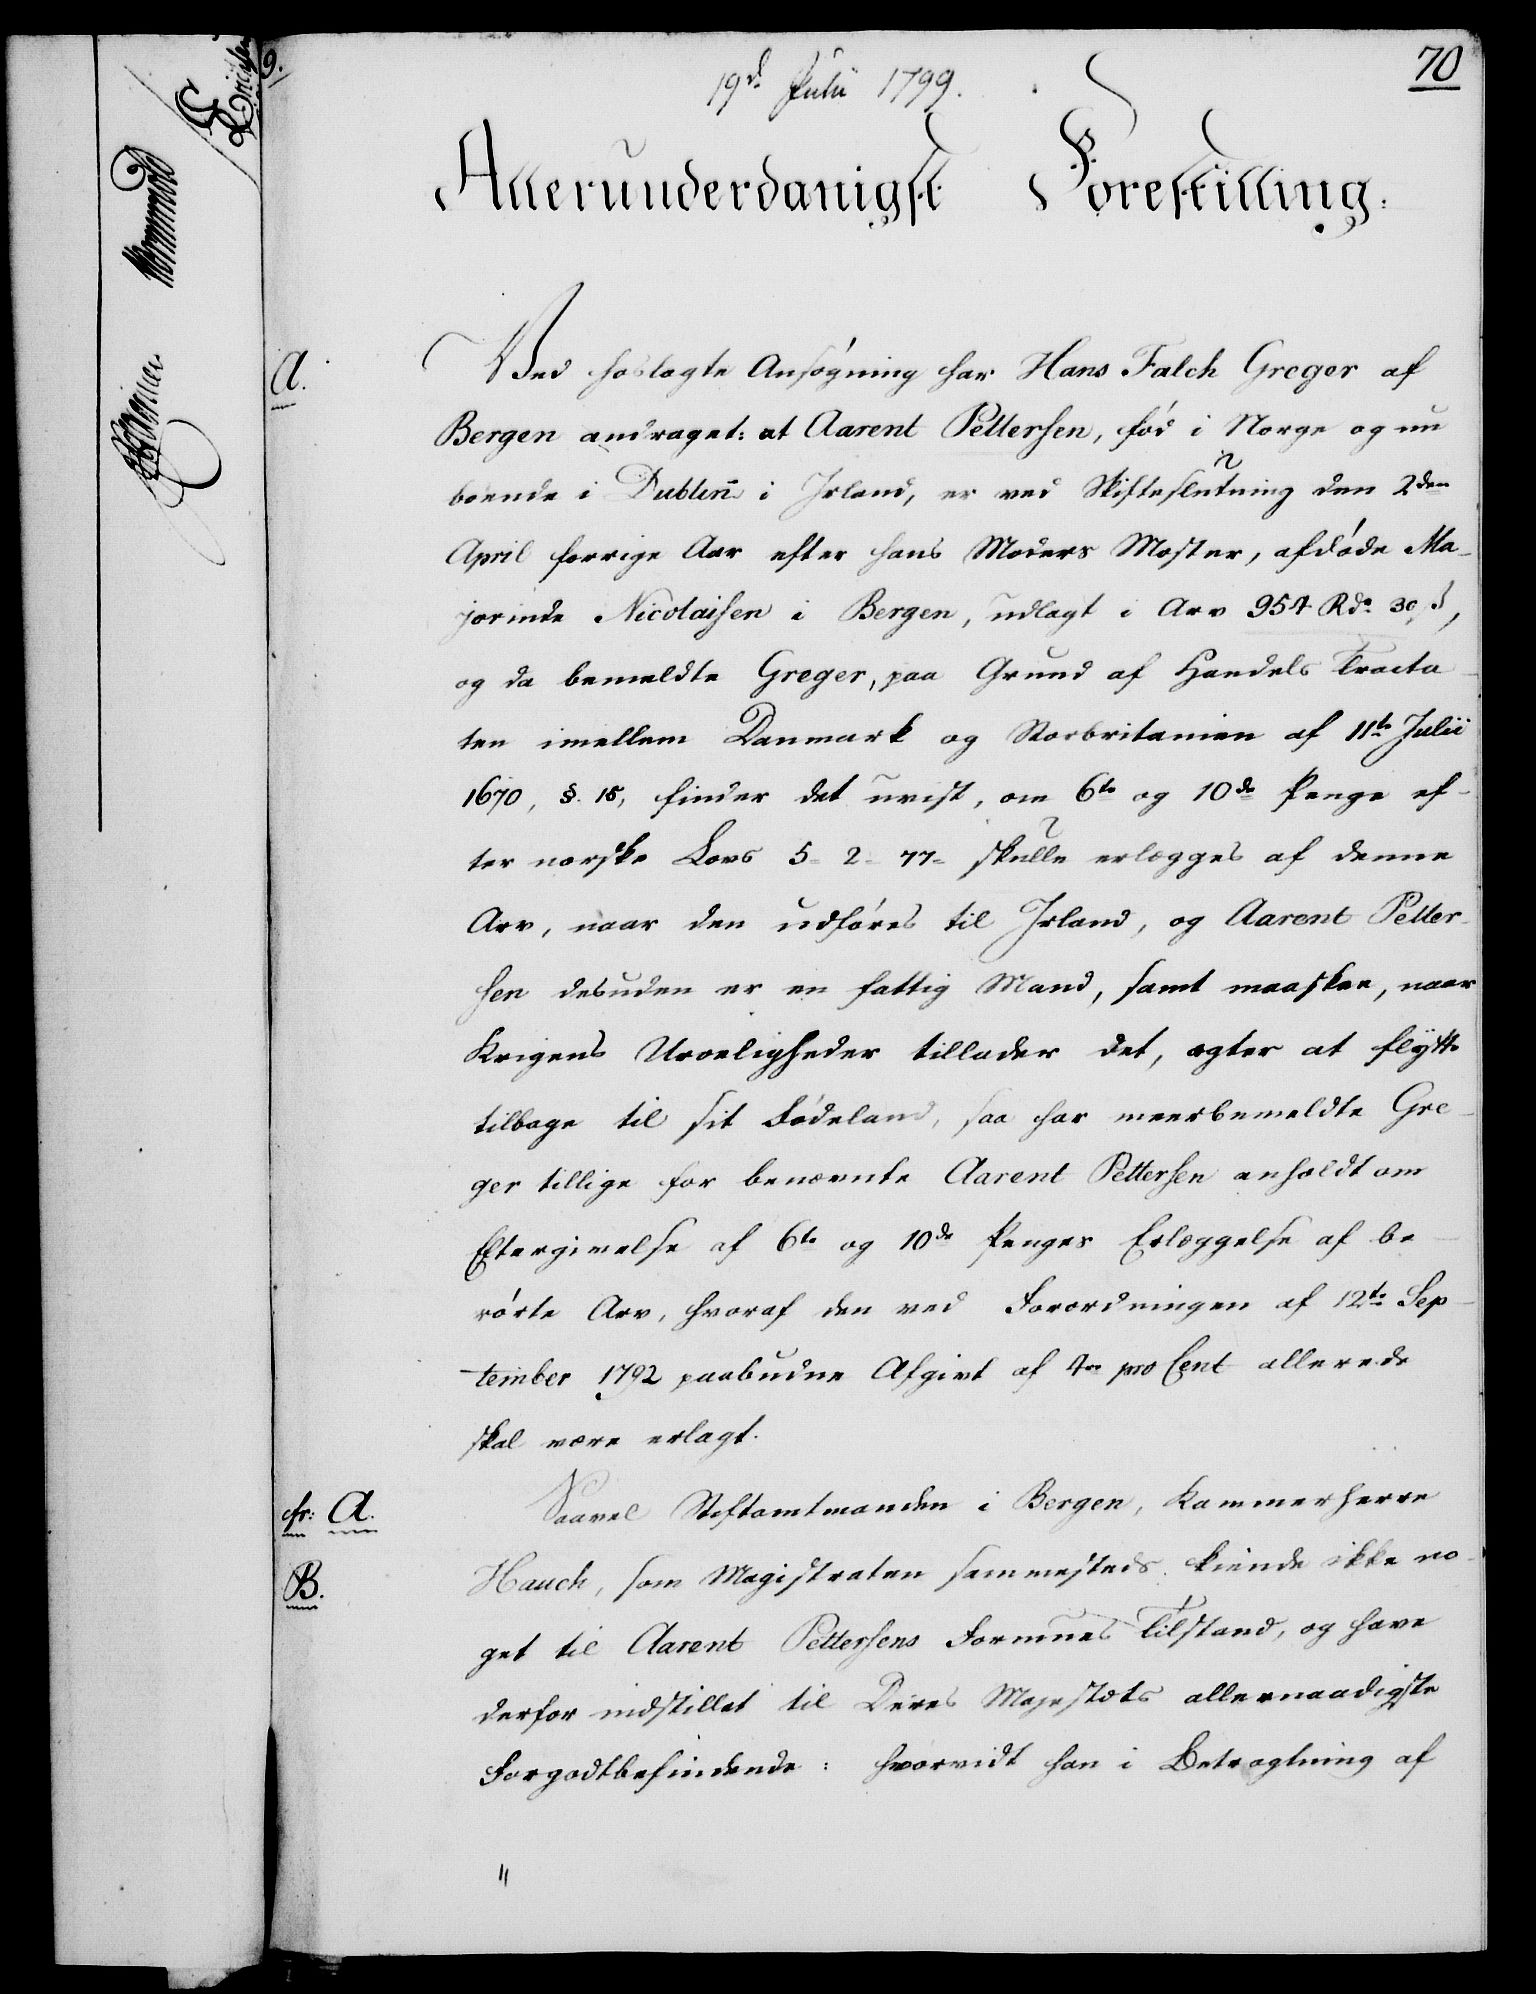 70
19d Julii 1799.
Allerunderdanigst Forestilling.
A.
Ved hoslagte Ansøgning har Hans Falch Greger af
Bergen andraget: at Aarent Pettersen, fød i Norge og nu
boende i Dublin i Irland, er ved Skifteslutning den 2den
April forrige Aar efter hans Moders Moster, afdøde Ma-
jorinde Nicolaisen i Bergen, udlagt i Arv 954 Rdr 30 ß,
og da bemeldte Greger, paa Grund af Handels Tracta-
ten imellem Danmark og Storbritanien af 11te Julii
1670, §. 15, finder det uvist, om 6te og 10de Penge ef-
ter norske Lovs 5-2-77- skulle erlægges af denne
Arv, naar den udføres til Irland, og Aarent Petter-
sen desuden er en fattig Mand, samt maaskee, naar
Krigens Uroeligheder tillader det, agter at flytte
tilbage til sit Fødeland, saa har meerbemeldte Gre-
ger tillige for benævnte Aarent Pettersen anholdt om
Eftergivelse af 6te og 10de Penges Erlæggelse af be-
rørte Arv, hvoraf den ved Forordningen af 12te Sep-
tember 1792 paabudne Afgivt af 4re pro Cent allerede
skal være erlagt.
cfr: A.
Saavel Stiftamtmanden i Bergen, Kammerherre
B.
Hauch, som Magistraten sammesteds kiende ikke no-
get til Aarent Pettersens Formues Tilstand, og have
derfor indstillet til Deres Majestæts allernaadigste
Forgodtbefindende: hvorvidt han i Betragtning af